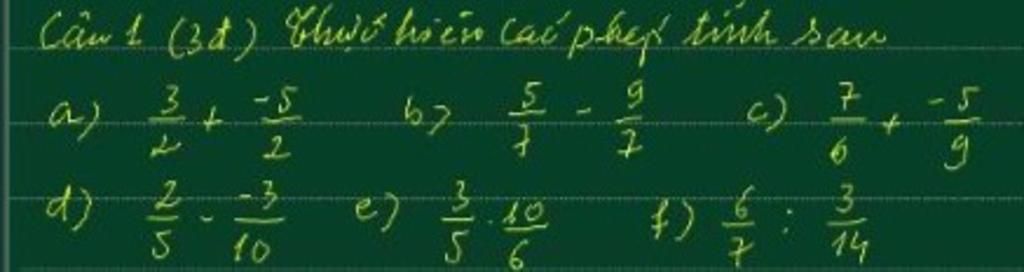 Câu 1 (3đ) Thực hiện các phép tính sau
a) 3/2 + -5/2 b) 5/7 - 9/7 c) 7/6 + -5/9
d) 2/5 - -3/10 e) 3/5 . 10/6 f) 6/7 : 3/14